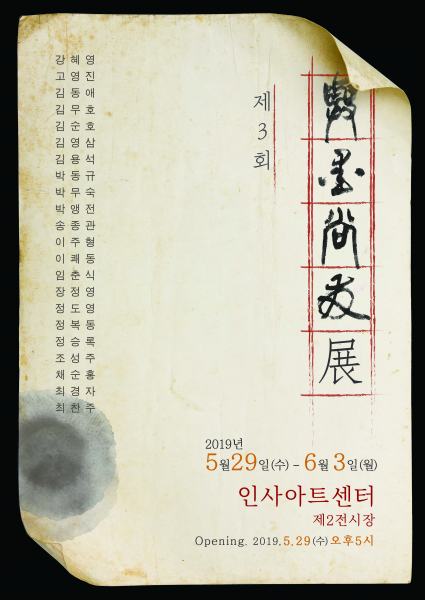 墨尚友展
제3회
강혜영
고영진
김동애
김무호
김순호
김영삼
김용석
박동규
박무숙
박앵전
송종관
이주형
이쾌동
임춘식
장정영
정도영
정복동
정승록
조성주
채순홍
최경자
최찬주
2019년
5월29일(수) - 6월 3일(월)
인사아트센터
제2전시장
Opening. 2019.5.29(수)오후5시